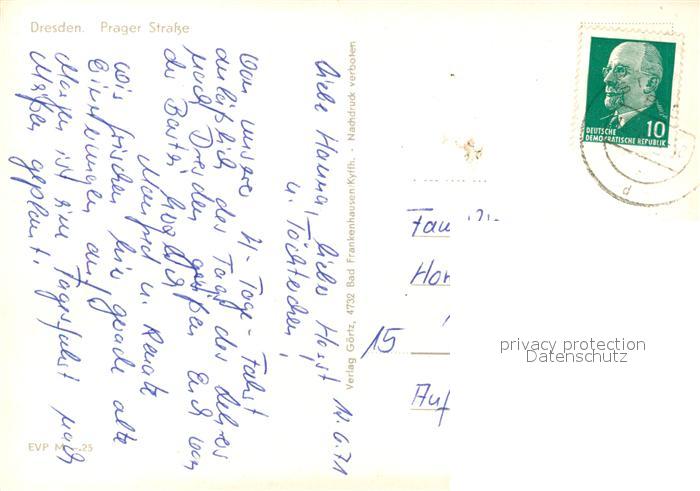 Dresden. Prager Straße
Liebe Hanna, lieber Horst 12.6.71
u. Töchterchen!
Von unserer 4-Tage-Fahrt
anläßlich des Tages des Lehrers
nach Dresden grüßen Euch von
der Bastei herzlich
Manfred u. Renate
Wir frischen hier gerade alte
Erinnerungen auf.
Morgen ist eine Tagesfahrt nach
Meißen geplant.
EVP M -.25
Verlag Görtz, 4732 Bad Frankenhausen/Kyffh. · Nachdruck verboten
10
DEUTSCHE
DEMOKRATISCHE REPUBLIK
d
Fam
Hor
15
Auf
privacy protection
Datenschutz